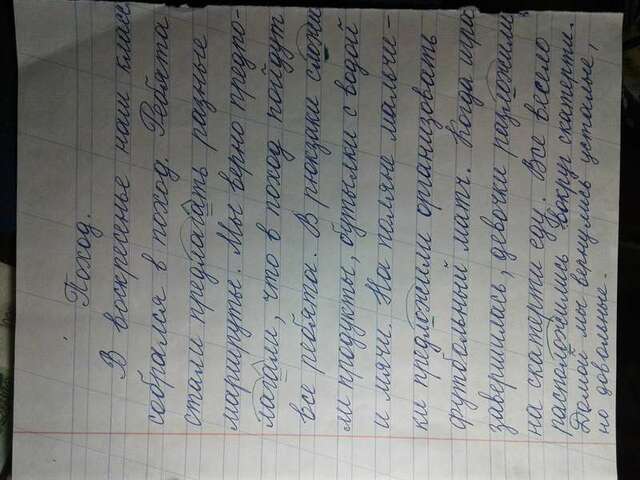 Поход.
В воскресенье наш класс
собрался в поход. Ребята
стали предлагать разные
маршруты. Мы верно предпо-
лагали, что в поход пойдут
все ребята. В рюкзаки сложи
ли продукты, бутылки с водой
и мячи. На поляне мальчи-
ки предложили организовать
футбольный матч. Когда игра
завершилась, девочки разложили
на скатерти еду. Все весело
расположились вокруг скатерти.
Домой мы вернулись усталые,
но довольные.